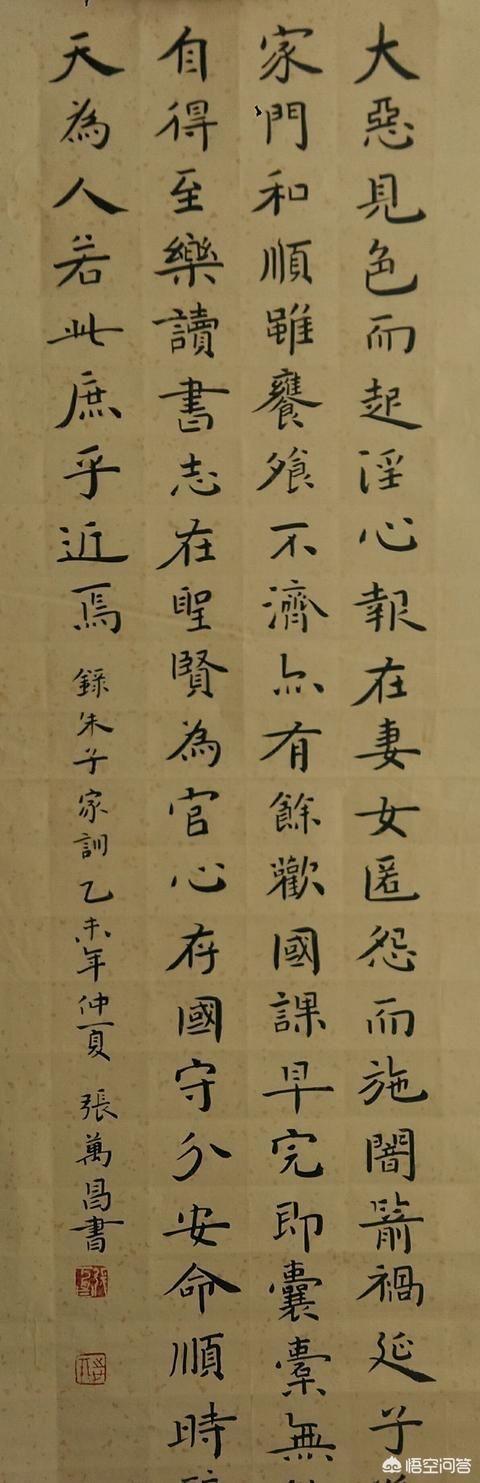 大惡見色而起淫心報在妻女匿怨而施闇箭禍延子
家門和順雖饔飧不濟亦有餘歡國課早完即囊橐無
自得至樂讀書志在聖賢為官心存國守分安命順時
天為人若此庶乎近焉
錄朱子家訓乙未年仲夏 張萬昌書
悟空问答